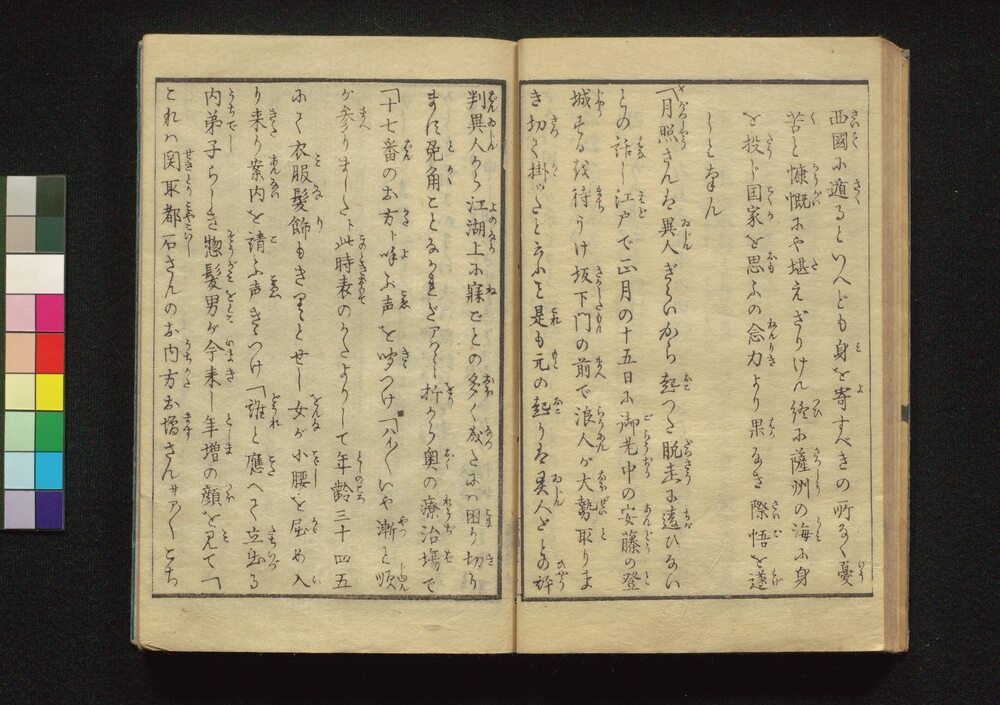 西國に遁るといへども身を寄すべきの所なく憂
苦と慷慨にや堪えざりけん終に薩洲の海に身
を投じ国家を思ふの念力より果なき際悟を遂
しとなん
「月照さんは異人ぎらいから起つた脱走に違ひない
との話し江戸で正月の十五日に御老中の安藤の登
城する を待うけ坂下門の前で浪人が大勢取りま
き切て掛ッたと云ふも是も元の起りは異人だとの評
判異人から江湖上に寐ごとの多く成たには困り切り
ますを兎角ことなかれだアハヽヽ折から奥の療治場で
「十七番のお方ト呼ぶ声を聞つけ「ハイ〳〵いや漸と順
が参りましたト此時表のかたよりして年齢三十四五
にて衣服髪飾もきりゝとせし女が小腰を屈め入
り来り案内を請ふ声きゝつけ「誰と應へて立出る
内弟子らしき惣髪男が今来し年増の顔を見て「
これハ関取都石さんのお内方お増さんサア〳〵こち